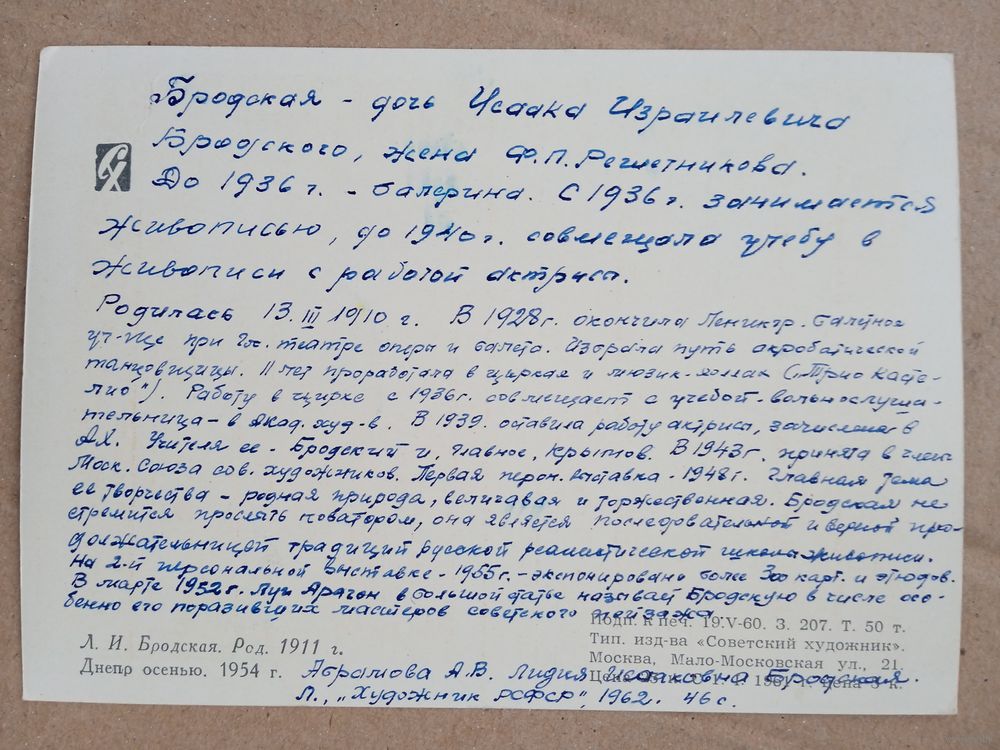 Бродская - дочь Исаака Израилевича
Бродского, жена Ф.П.Решетникова.
До 1936 г. - балерина. С 1936 г. занимается
живописью, до 1940 г. совмещала учебу в
живописи с работой актрисы.
Родилась 13.III 1910 г. В 1928 г. окончила Ленингр. балетное
уч-ще при Гос. театре оперы и балета. Избрала путь акробатической
танцовщицы. 11 лет проработала в цирках и мюзик-холлах ("Трио Касте-
лио"). Работу в цирке с 1936 г. совмещает с учебой - вольнослуша-
тельница - в Акад. худ-в. В 1939. оставила работу актрисы, зачислена в
АХ. Учителя ее - Бродский и, главное, Крымов. В 1943 г. принята в члены
Моск. Союза сов. художников. Первая перон. выставка - 1948 г. Главная тема
ее творчества - родная природа, величавая и торжественная. Бродская не
стремится прослыть новатором, она является последовательной и верной про-
должательницей традиций русской реалистической школы живописи.
На 2-й персональной выставке - 1955 г. - экспонировано более 300 карт. и этюдов.
В марте 1952 г. Луи Арагон в большой статье называет Бродскую в числе осо-
бенно его поразивших мастеров советского пейзажа.
Подп. к печ. 19.V-60. З. 207. Т. 50 т.
Л. И. Бродская. Род. 1911 г.
Тип. изд-ва «Советский художник».
Днепр осенью. 1954 г.
Москва, Мало-Московская ул., 21.
Абрамова А.В. Лидия Исааковна Бродская.
Л., "Художник РСФСР", 1962. 46 с.